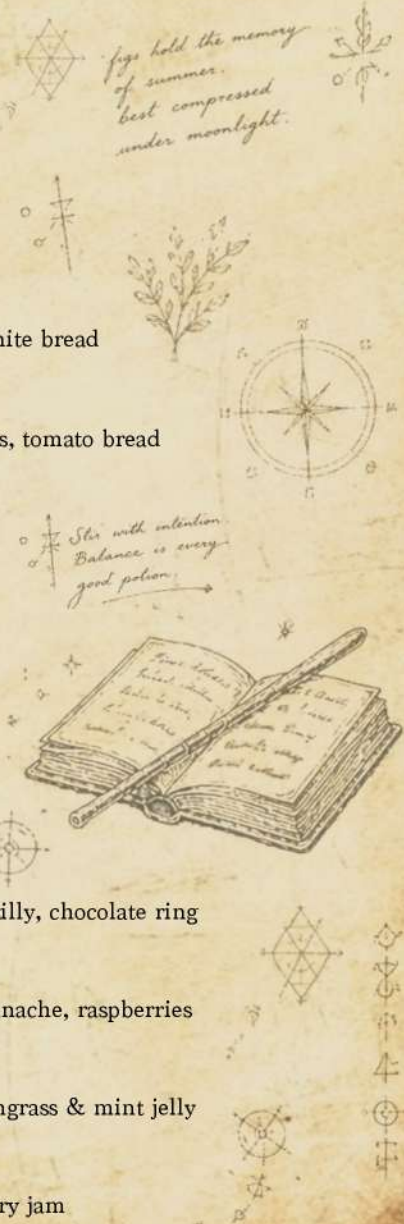 figs hold the memory
of summer.
best compressed
under moonlight.
ite bread
s, tomato bread
Stir with intention
Balance is every
good potion.
illy, chocolate ring
nache, raspberries
ngrass & mint jelly
ry jam